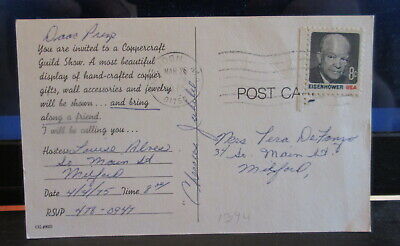 Door Prize
You are invited to a Coppercraft
Guild Show. A most beautiful
display of hand-crafted copper
gifts, wall accessories and jewelry
will be shown ... and bring
along a friend.
I will be calling you...
Hostess Louise Alves
So. Main St
Milford
Date 4/4/75 Time 8
RSVP 478-0947
MAR
0175
POST CA
EISENHOWER USA
8c
Mrs
37 So. Main St.
Milford,
1394